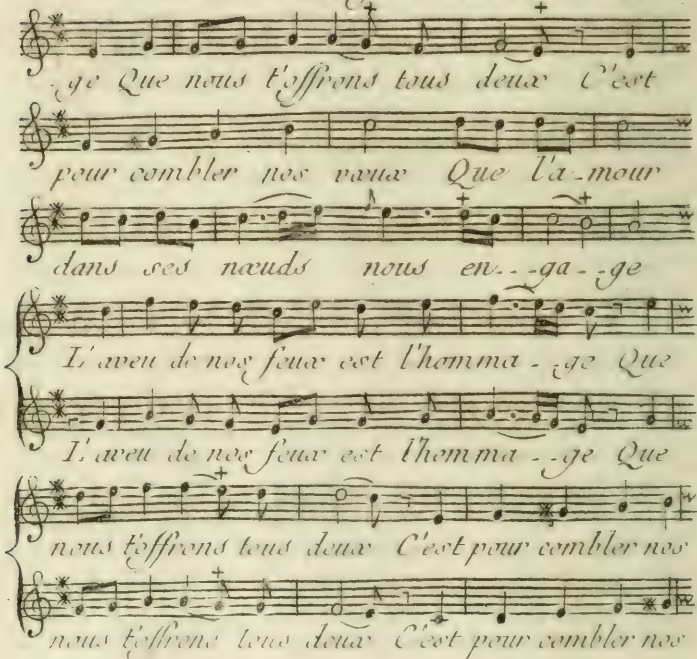 ge Que nous t'offrons tous deux C'est
pour combler nos vœux Que l'a-mour
dans ses nœuds nous en---ga--ge
L'aveu de nos feux est l'homma--ge Que
L'aveu de nos feux est l'homma--ge Que
nous t'offrons tous deux C'est pour combler nos
nous t'offrons tous deux C'est pour combler nos